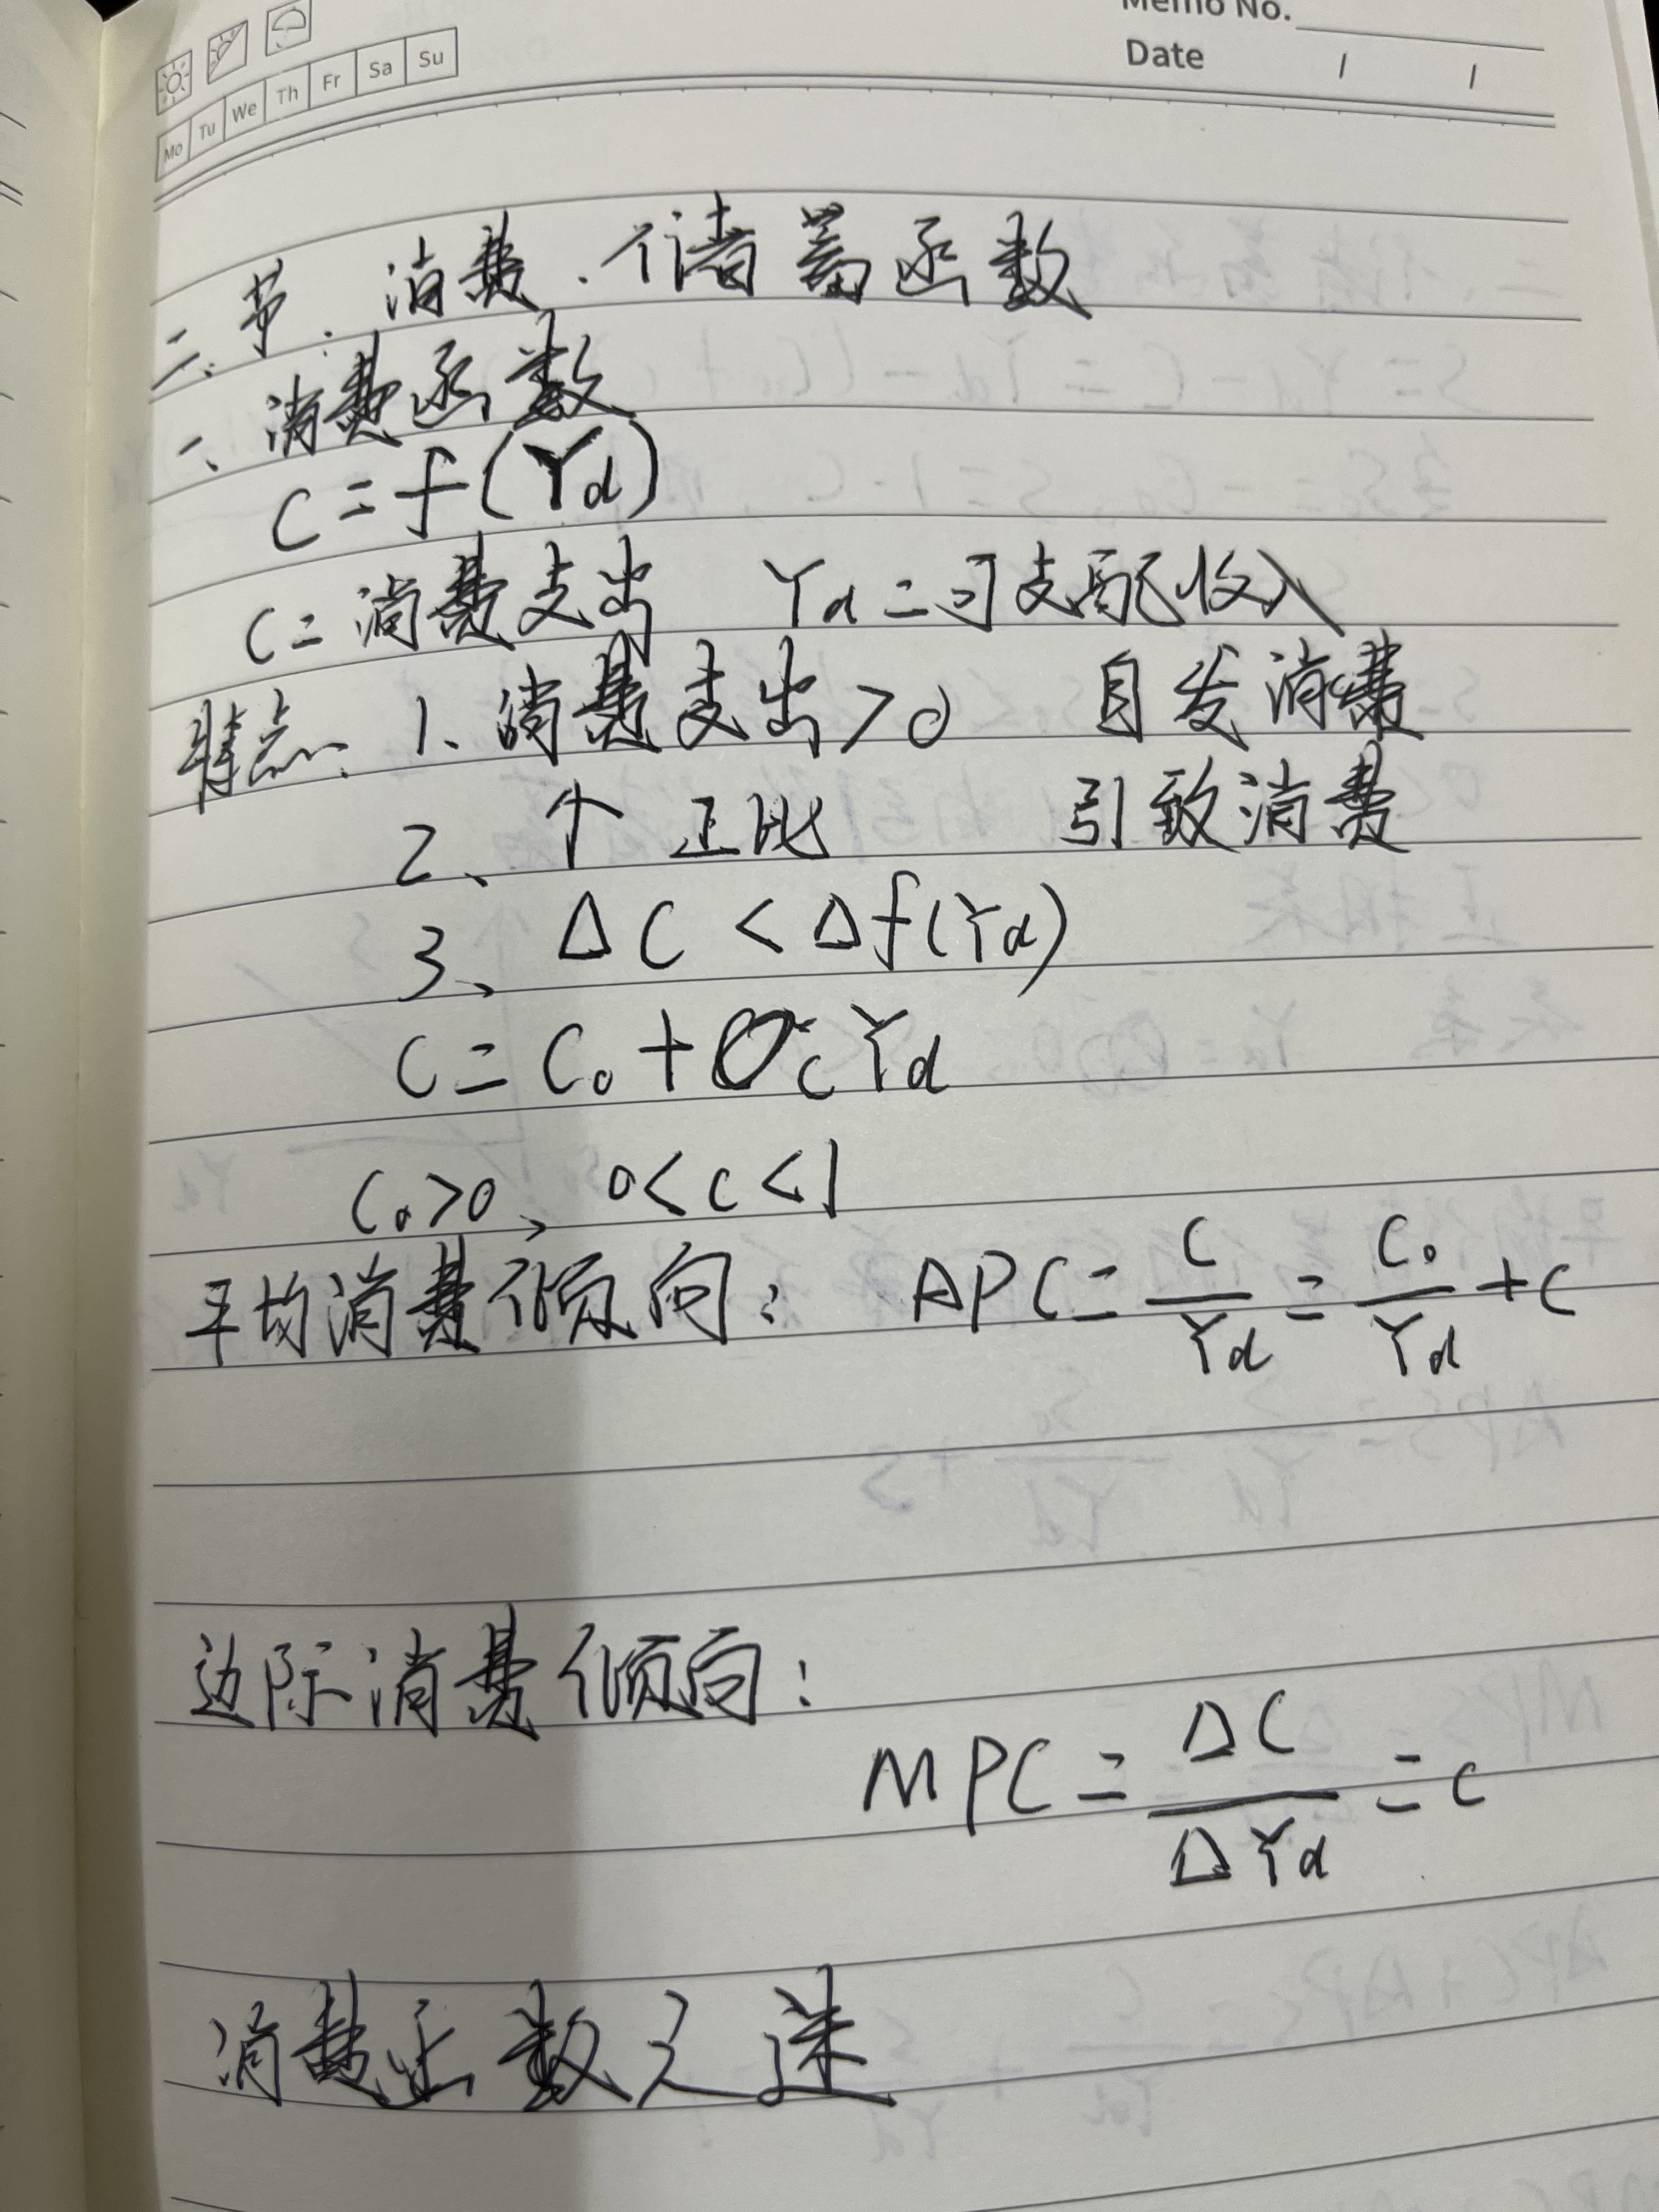 Memo No.
Date / /
Mo Tu We Th Fr Sa Su
二、节：消费、储蓄函数
一、消费函数
C = f(Yd)
C = 消费支出 Yd = 可支配收入
特点、1、消费支出>0 自发消费
2、个 正比 引致消费
3、ΔC < Δf(Yd)
C = C₀ + cYd
C₀>0、0<c<1
平均消费倾向： APC = C/Yd = C₀/Yd + c
边际消费倾向：
MPC = ΔC/ΔYd = c
消费函数之迷